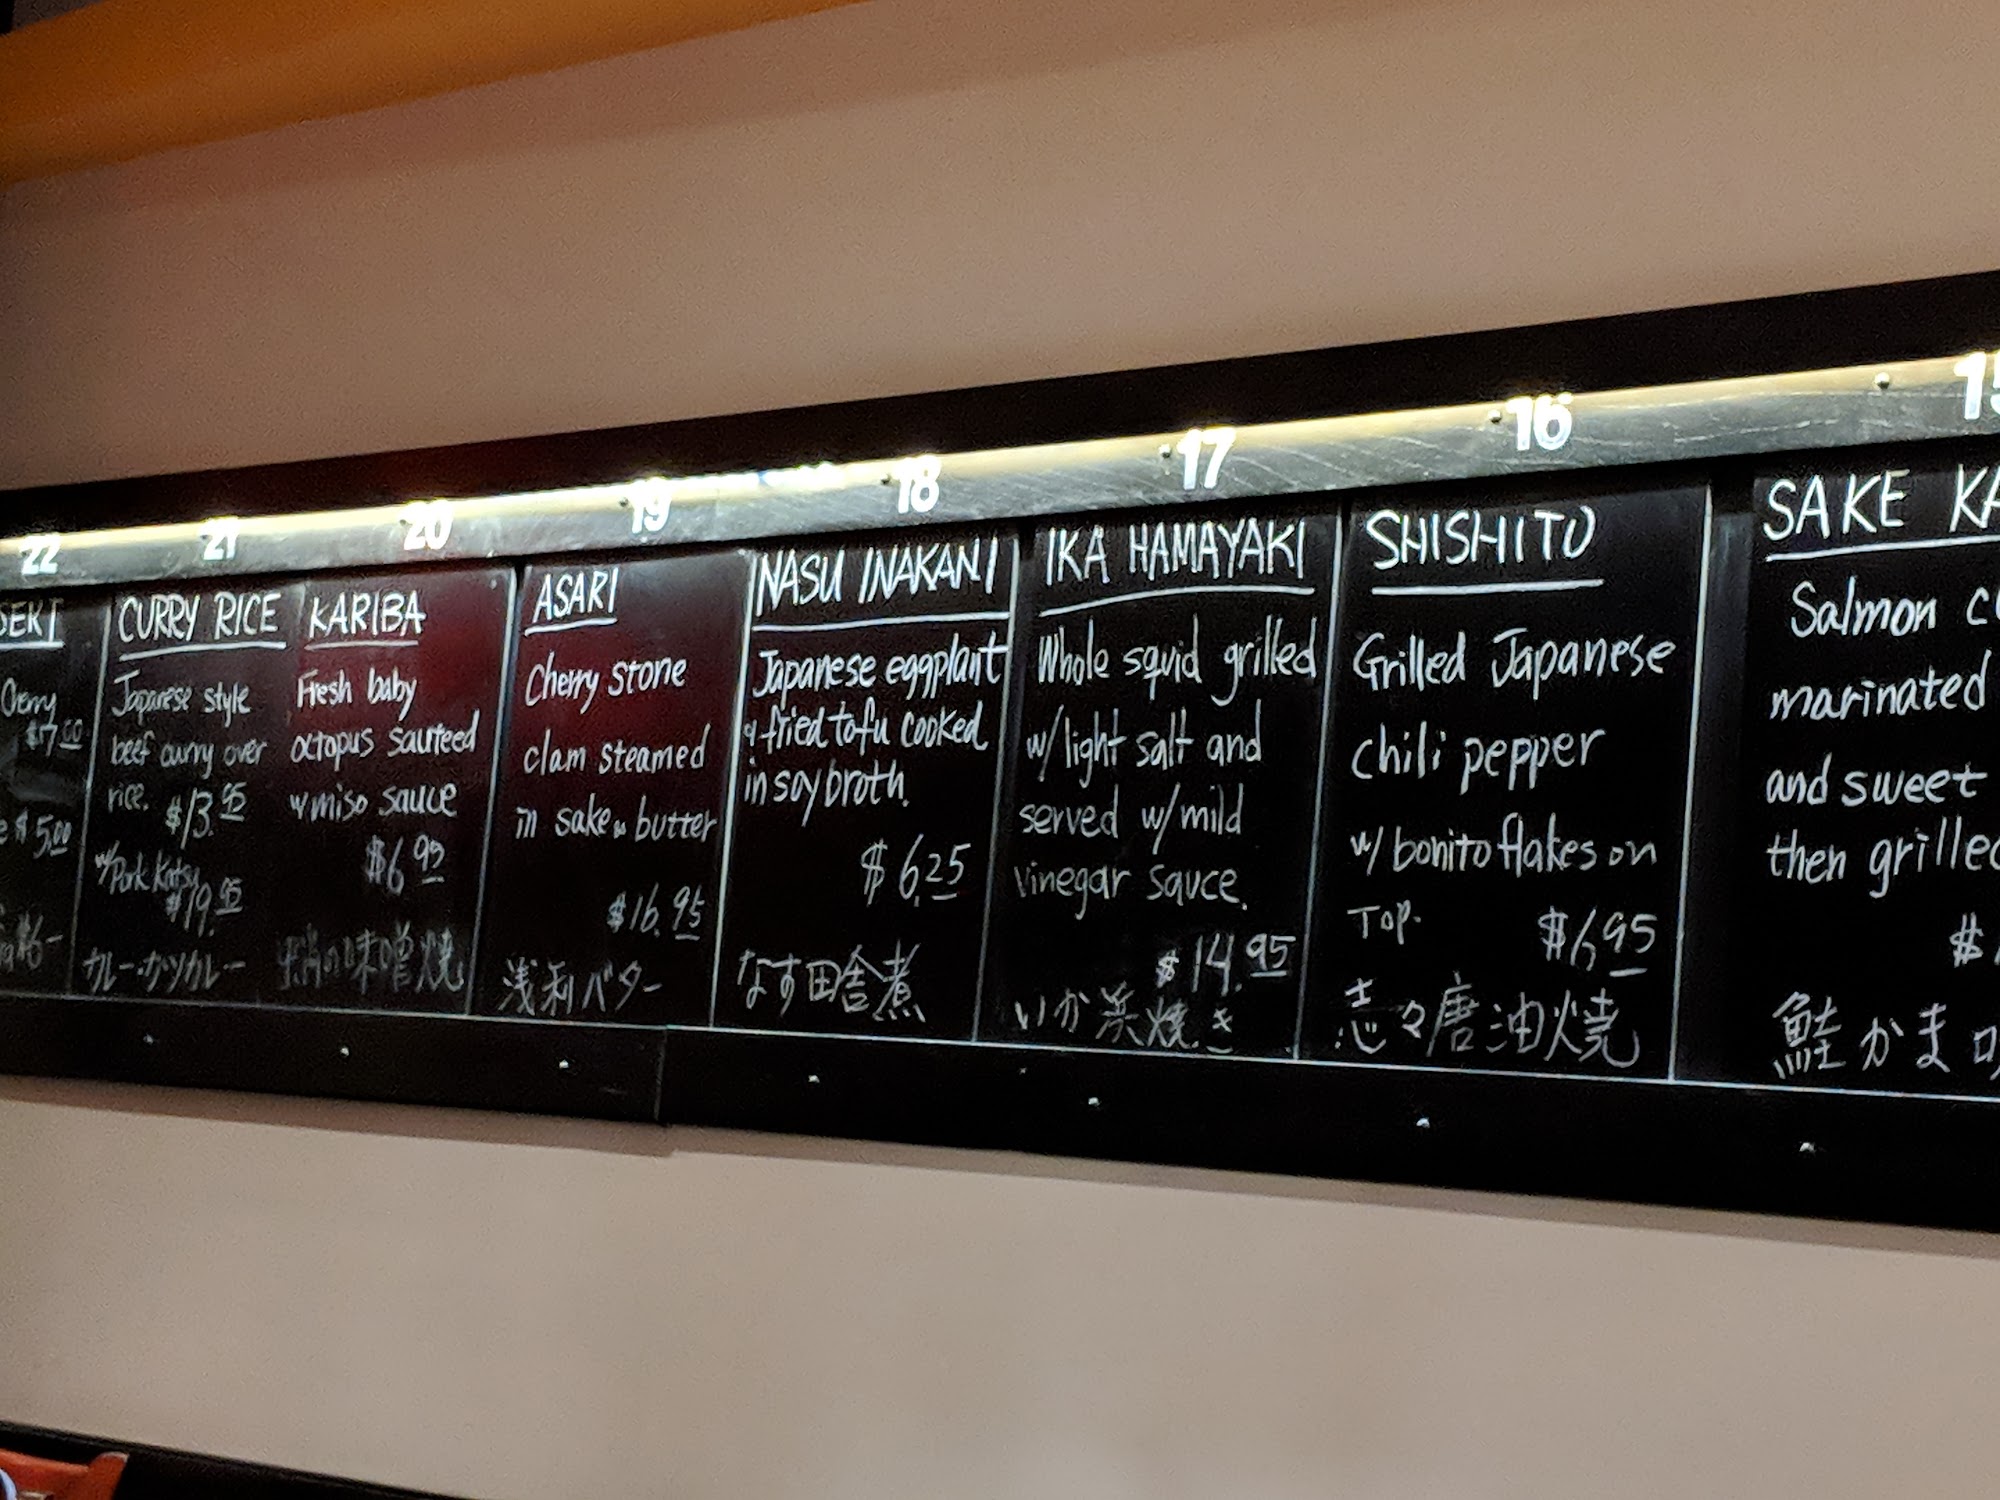 22
21
20
19
18
17
16
SEKI
Cherry
$7.00
$5.00
CURRY RICE
Japanese style
beef curry over
rice. $13.95
w/Pork Katsu
$19.95
カレー・カツカレー
KARIBA
Fresh baby
octopus sauteed
w miso sauce
$6.95
味噌焼
ASARI
Cherry stone
clam steamed
in sake butter
$16.95
浅利バター
NASU INAKANI
Japanese eggplant
& fried tofu cooked
in soy broth.
$6.25
なす田舎煮
IKA HAMAYAKI
Whole squid grilled
w/ light salt and
served w/ mild
vinegar sauce.
$14.95
いか浜焼き
SHISHITO
Grilled Japanese
chili pepper
w/ bonito flakes on
Top. $6.95
志々唐油焼
SAKE KA
Salmon
marinated
and sweet
then grilled
$
鮭かま